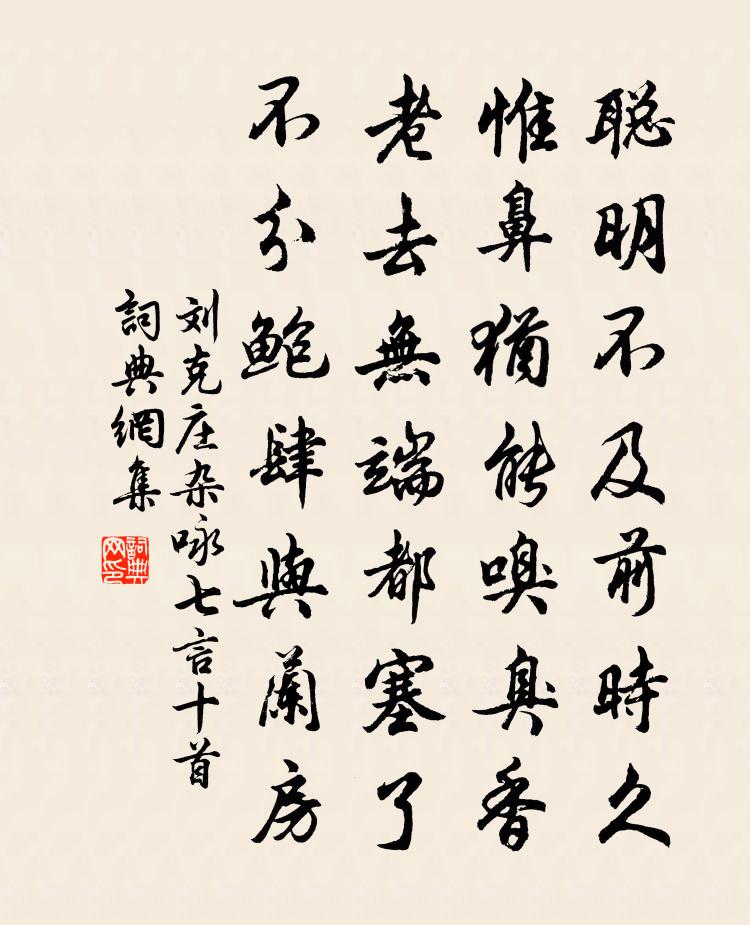 聪明不及前時久
惟鼻猶能嗅臭香
老去無端都塞了
不分鲍肆與蘭房
刘克庄杂咏七言十首
詞典網集
詞典网印